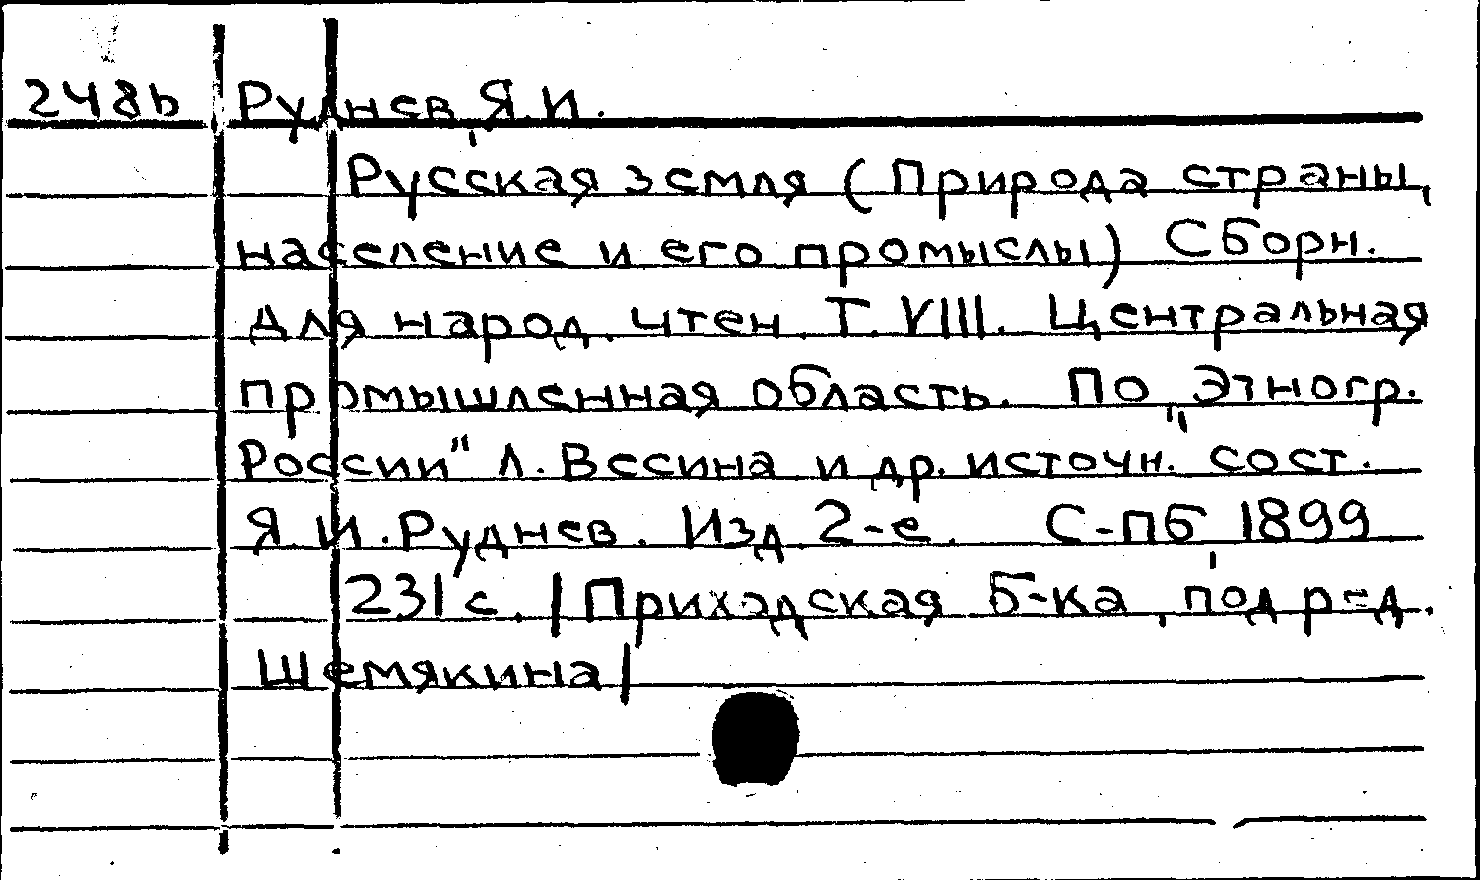 248b Руднев, Я.И.
Русская земля (Природа страны,
население и его промыслы) Сборн.
для народ. чтен. Т. VIII. Центральная
промышленная область. По „Этногр.
России" Л. Весина и др. источн. сост.
Я.И. Руднев. Изд. 2-е. С-пб, 1899
231 с. | Приходская б-ка, под ред.
Шемякина |